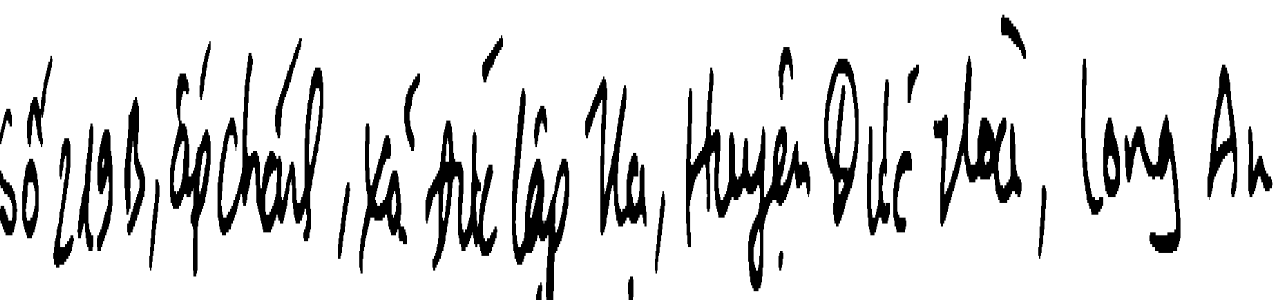 Số 219B, ấp Chánh, xã Đức Lập Hạ, Huyện Đức Hoà, Long An